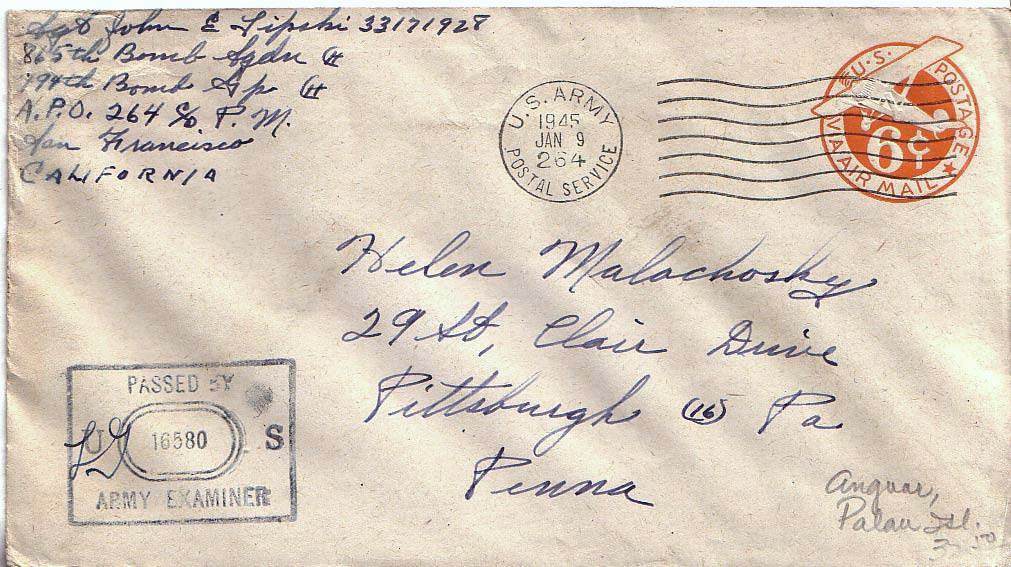 Sgt John E Lipski 33171928
865th Bomb Sqdn (H
494th Bomb Gp (H
A.P.O. 264 c/o P.M.
San Francisco
CALIFORNIA
U.S. ARMY
1945
JAN 9
264
POSTAL SERVICE
U.S. POSTAGE
6¢
VIA AIR MAIL
Helen Malachosky
29 St, Clair Drive
Pittsburgh (16) Pa
Penna
PASSED BY
U 16580 S
ARMY EXAMINER
Anguar,
Palau Isl.